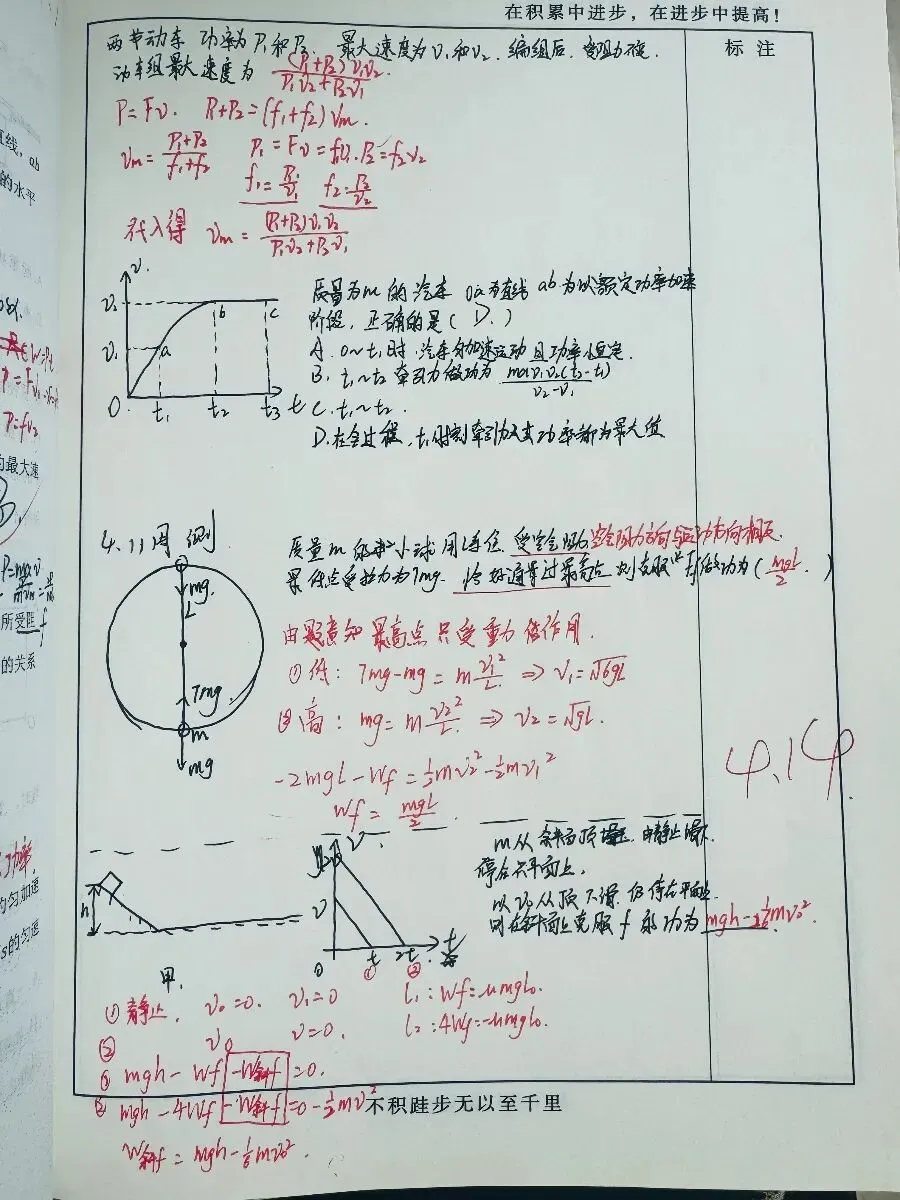 在积累中进步，在进步中提高！
标注
两节动车 功率为P₁和P₂. 最大速度为v₁和v₂. 编组后,
动车组最大速度为 (P₁+P₂)v₁v₂/(P₁v₂+P₂v₁).
P=Fv. P₁+P₂=(f₁+f₂)vm.
vm=(P₁+P₂)/(f₁+f₂) P₁=Fv=f₁v₁. P₂=f₂v₂
f₁=P₁/v₁ f₂=P₂/v₂
代入得 vm=(P₁+P₂)v₁v₂/(P₁v₂+P₂v₁)
v.
v₂
v₁
a
b
c
O
t₁
t₂
t₃
t
质量为m的汽车 oa为直线 ab为以额定功率加速
阶段, 正确的是( D. )
A. 0~t₁时,汽车匀加速运动且功率恒定.
B. t₁~t₂ 牵引力做功为
v₂-v₁
C. t₁~t₂.
D.在全过程, t₁时刻牵引力及其功率都为最大值
4.11周测
质量m的 小球用 受空气阻力 空气阻力方向与运动方向相反
最低点受拉力为7mg. 恰好通过最高点 则克服 做功为( mgL/2. )
mg.
L
7mg.
m
mg
由题意知 最高点只受重力作用.
①低: 7mg-mg=m v₁²/L ⇒ v₁=√6gL
②高: mg=m v₂²/L ⇒ v₂=√gL.
-2mgL-Wf=½mv₂²-½mv₁²
Wf=mgL/2.
4.14
h
甲.
v
v
t
2t
t
①
②
m从斜面顶端 由静止滑下.
停在水平面上.
以v₀从顶下滑 仍停在平面上.
则在斜面上克服f做功为 mgh-⅙mv₀².
①静止. v₀=0. v₁=0 l₁:Wf=μmgl₀.
② v₀ v=0. l₂:4Wf=-μmgl₀.
① mgh-Wf-W斜f=0.
② mgh-4Wf-W斜f=0-½mv²
W斜f=mgh-⅙mv₀².
不积跬步无以至千里
直线，ab
的水平
P=fv₂
的最大速
所受阻
的关系
功率
的匀加速
s的匀速